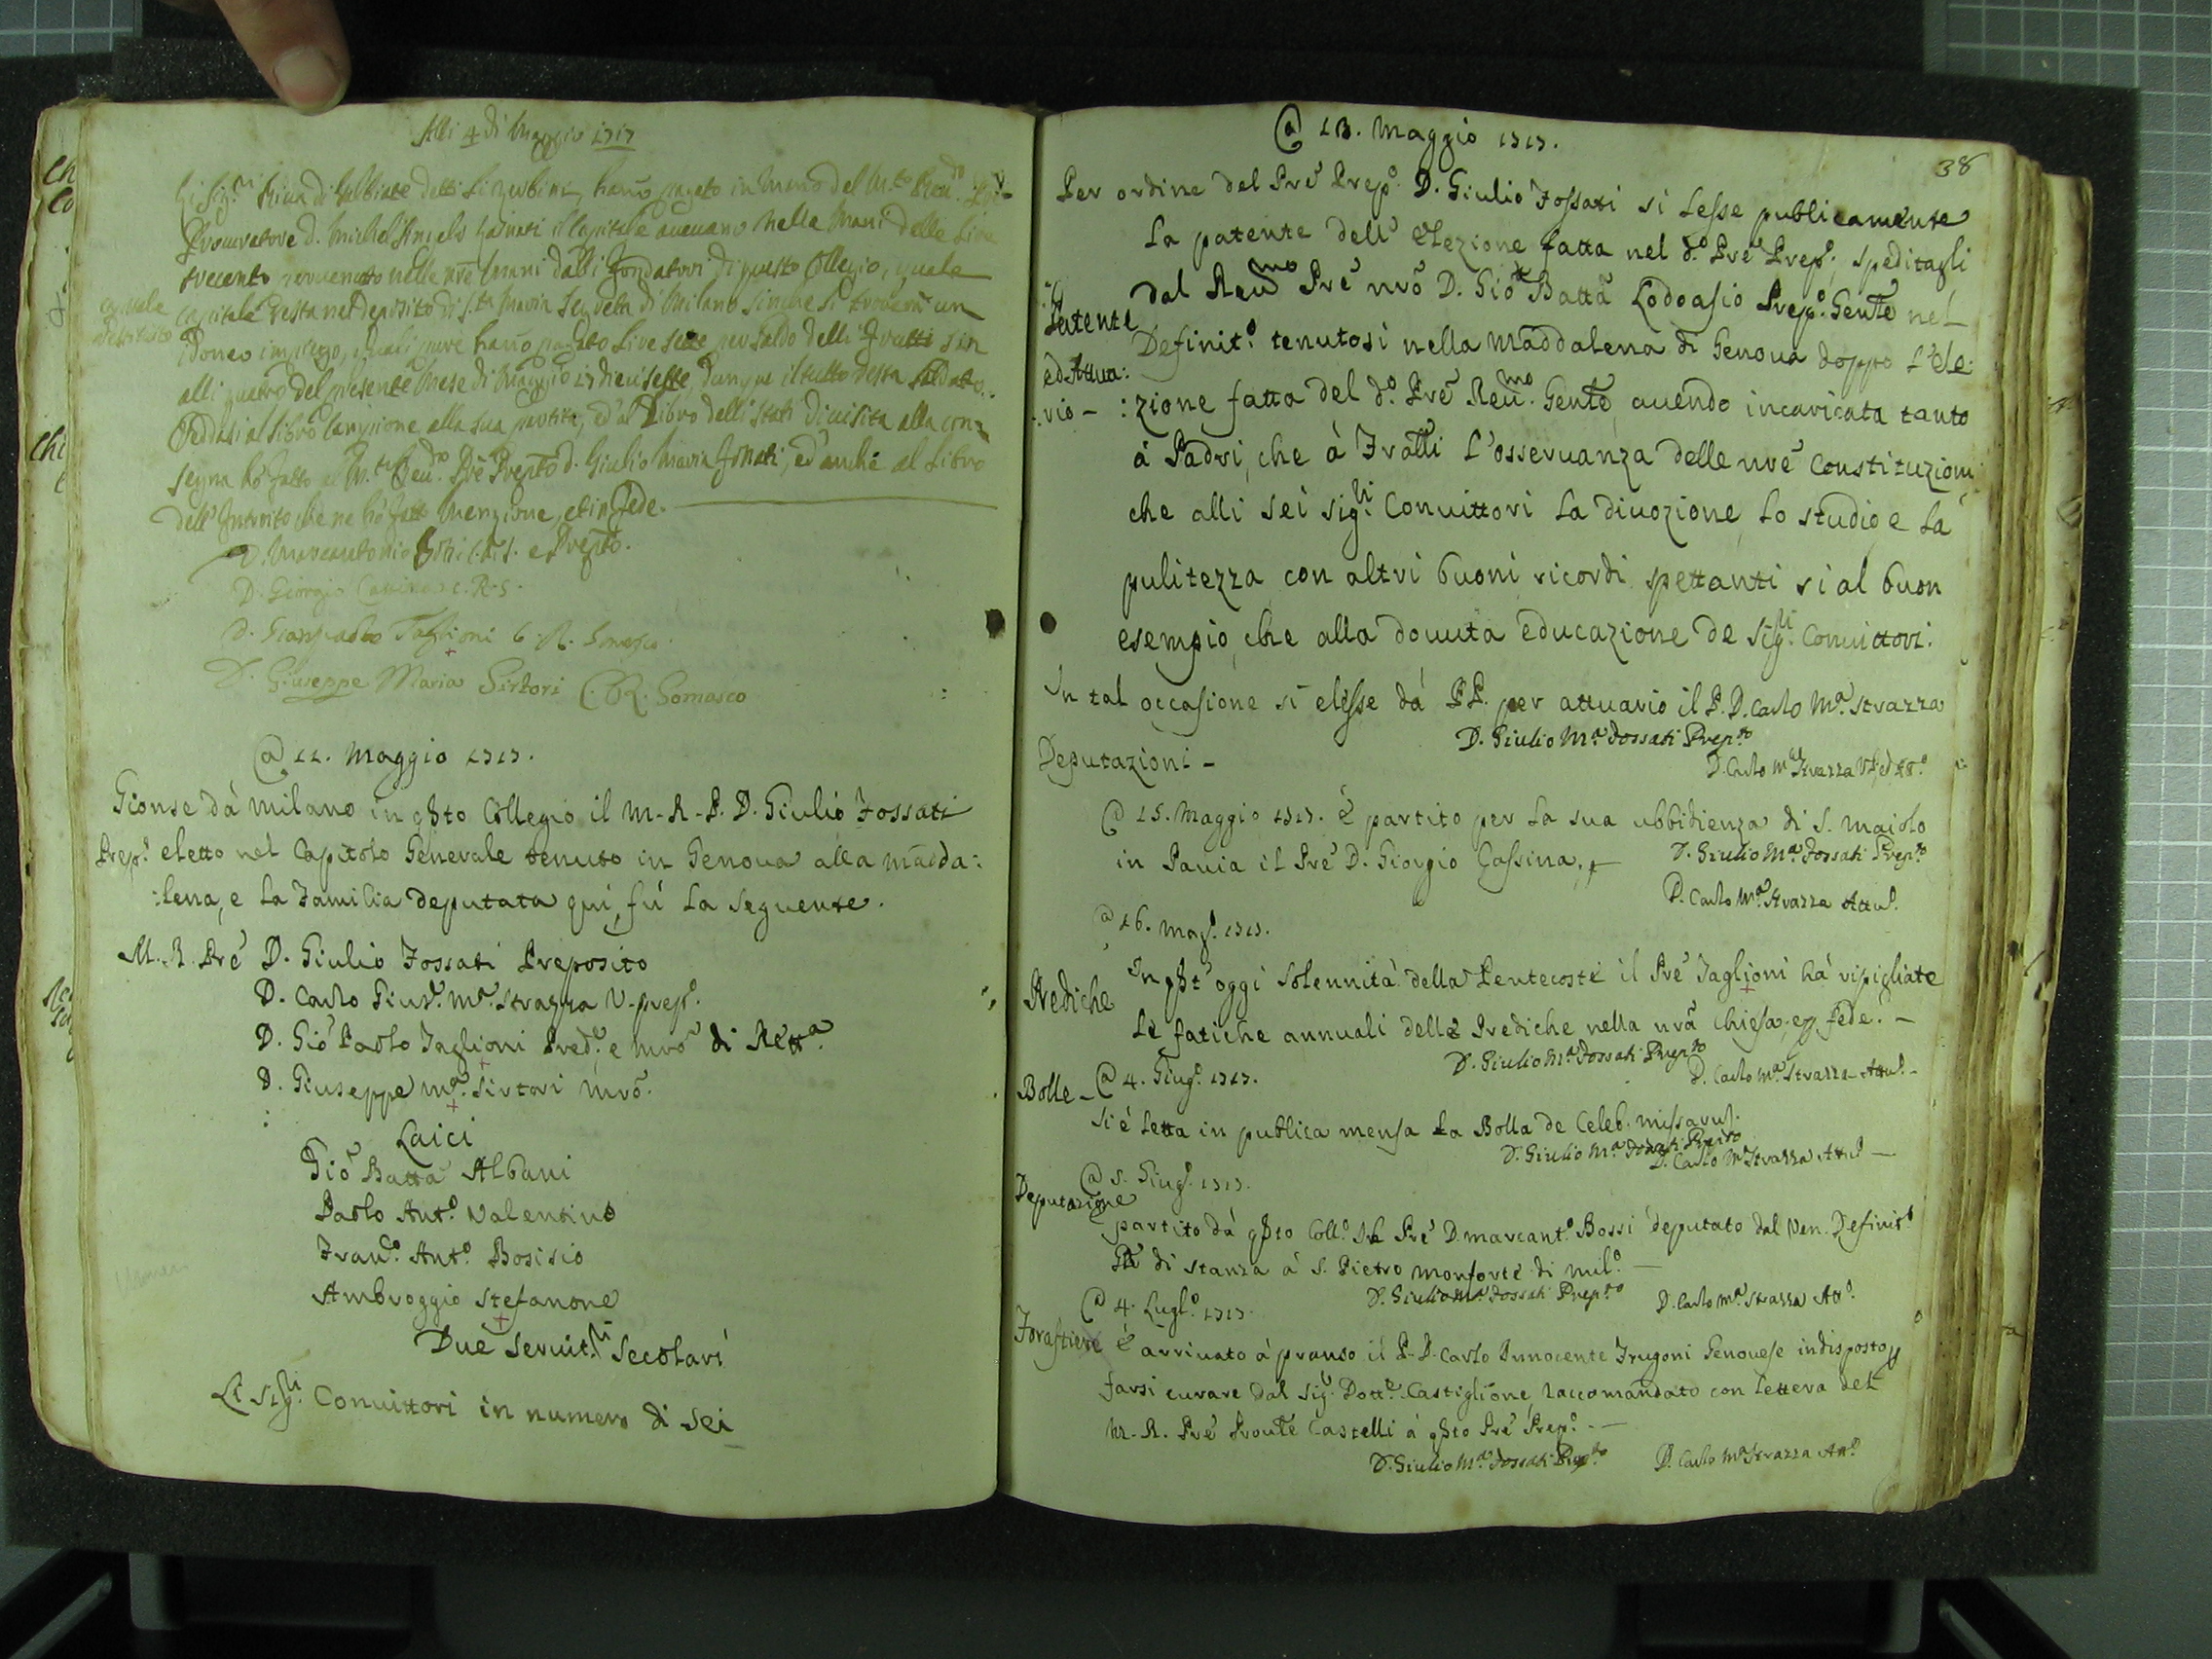 Alli 4 di Maggio 1717
Li Sig.ri Riva di Galbiate detti li hanno pagato in mano del M.to Rev.do
Procuratore D. Michel'Angelo il Capitale avevano nelle Mani delle Lire
trecento nelle nr̃e mani dalli fondatori di questo Collegio, quale
capitale
Capitale resta nel deposito di S.ta Maria Segreta di Milano sinche si troverà un
idoneo impiego, quali pure hanno pagato Lire sette per saldo delli frutti sin
alli quatro del presente Mese di Maggio 17diecisette, dunque il tutto resta saldato.
Veddasi al libro Campione alla sua partita, ed al Libro delli Stati di visita alla con=
segna hò fatto al M.to Rev.do Prẽ Prep.to D. Giulio Maria Fossati, ed anche al Libro
dell'Introito che ne hò fatto Menzione, et in fede.
D. Marcantonio C.R.S. e Prep.to
D. Giorgio Cassina C.R.S.
D. Gianpaolo Taglioni C.R. Somasco
D. Giuseppe Maria Sirtori C.R. Somasco
@ 11. Maggio 1717.
Gionse dà Milano in q̃sto Collegio il M.R.P.D. Giulio Fossati
Prep.o eletto nel Capitolo Generale tenuto in Genova alla Madda:
:lena, e la Familia deputata quì, fú la seguente.
M.R. Prẽ D. Giulio Fossati Preposito
D. Carlo Gius.e M.a Strazza V-prep.o
D. Gio Paolo Taglioni Pred.e e mrõ di Rett.a
D. Giuseppe M.a Sirtori Mrõ.
Laici
Gio Batta Albani
Paolo Ant.o Valentino
Fran.co Ant.o Bosisio
Ambroggio Stefanone
Due Servit.ri Secolari
Li Sig.ri Convittori in numero di Sei
38
@ 13. Maggio 1717.
Per ordine del Prẽ Prep.o D. Giulio Fossati si lesse publicamente
la patente dell'Elezione fatta nel d.o Prẽ Prep.o, speditagli
dal Reu.mo Prẽ nrõ D. Gio Batta Lodoasio Prep.o Genle nel
Patente
Definit.o tenutosi nella Maddalena di Genova doppo l'Ele:
ed Attua:
:rio -
:zione fatta del d.o Prẽ Reu.mo Genle avendo incaricata tanto
à Padri, che à Fratti l'osservanza delle nrẽ Constituzioni,
che alli sei sig.ri Convittori la divozione, lo studio e la
pulitezza con altri buoni ricordi spettanti si al buon
esempio, che alla dovuta educazione de Sig.ri Convittori.
In tal occasione si elesse dà PP. per attuario il P.D. Carlo M.a Strazza
D. Giulio M.a Fossati Prep.to
D. Carlo M.a Strazza
Deputazioni -
@ 15. Maggio 1717. È partito per la sua ubbidienza di S. Maiolo
in Pavia il Prẽ D. Giorgio Cassina.
D. Giulio M.a Fossati Prep.to
D. Carlo M.a Strazza Attu.o
@ 16. Mag.o 1717.
Prediche
In q̃st'oggi solennità della Pentecoste il Prẽ Taglioni hà ripigliate
le fatiche annuali delle Prediche nella nrã Chiesa; e p fede. -
D. Giulio M.a Fossati Prep.to
D. Carlo M.a Strazza Attu.o -
Bolle -
@ 4. Giug.o 1717.
Si è letta in publica mensa la Bolla de Celeb. missaru͂.
D. Giulio M.a Fossati Prep.to
D. Carlo M.a Strazza Att.o -
@ 5. Giug.o 1717.
Deputazione
partito dà q̃sto Coll.o Il Prẽ D. Marcant.o Bossi deputato dal Ven. Definit.o
di stanza à S. Pietro Monforte di Mil.o -
D. Giulio M.a Fossati Prep.to
D. Carlo M.a Strazza Att.o
@ 4. Lugl.o 1717.
Forastiere
È arrivato à pranso il P.D. Carlo Innocente Frugoni Genovese indisposto p
farsi curare dal Sig.r Dott.e Castiglione, raccomandato con lettera del
M.R. Prẽ Pronle Castelli à q̃sto Prẽ Prep.o -
D. Giulio M.a Fossati Prep.to
D. Carlo M.a Strazza Att.o